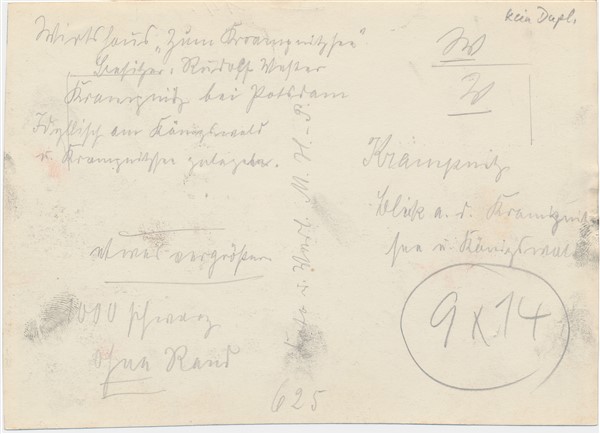 kein Dupl.
Wirtshaus „Zum Krampnitzsee"
Besitzer: Rudolf Wester
Krampnitz bei Potsdam
Idyllisch am Königswald
u. Krampnitzsee gelegen.
W
W
Krampnitz
Blick a. d. Krampnitz
see u. Königswald
etwas vergrößern
1000 schwarz
ohne Rand
9 x 14
625